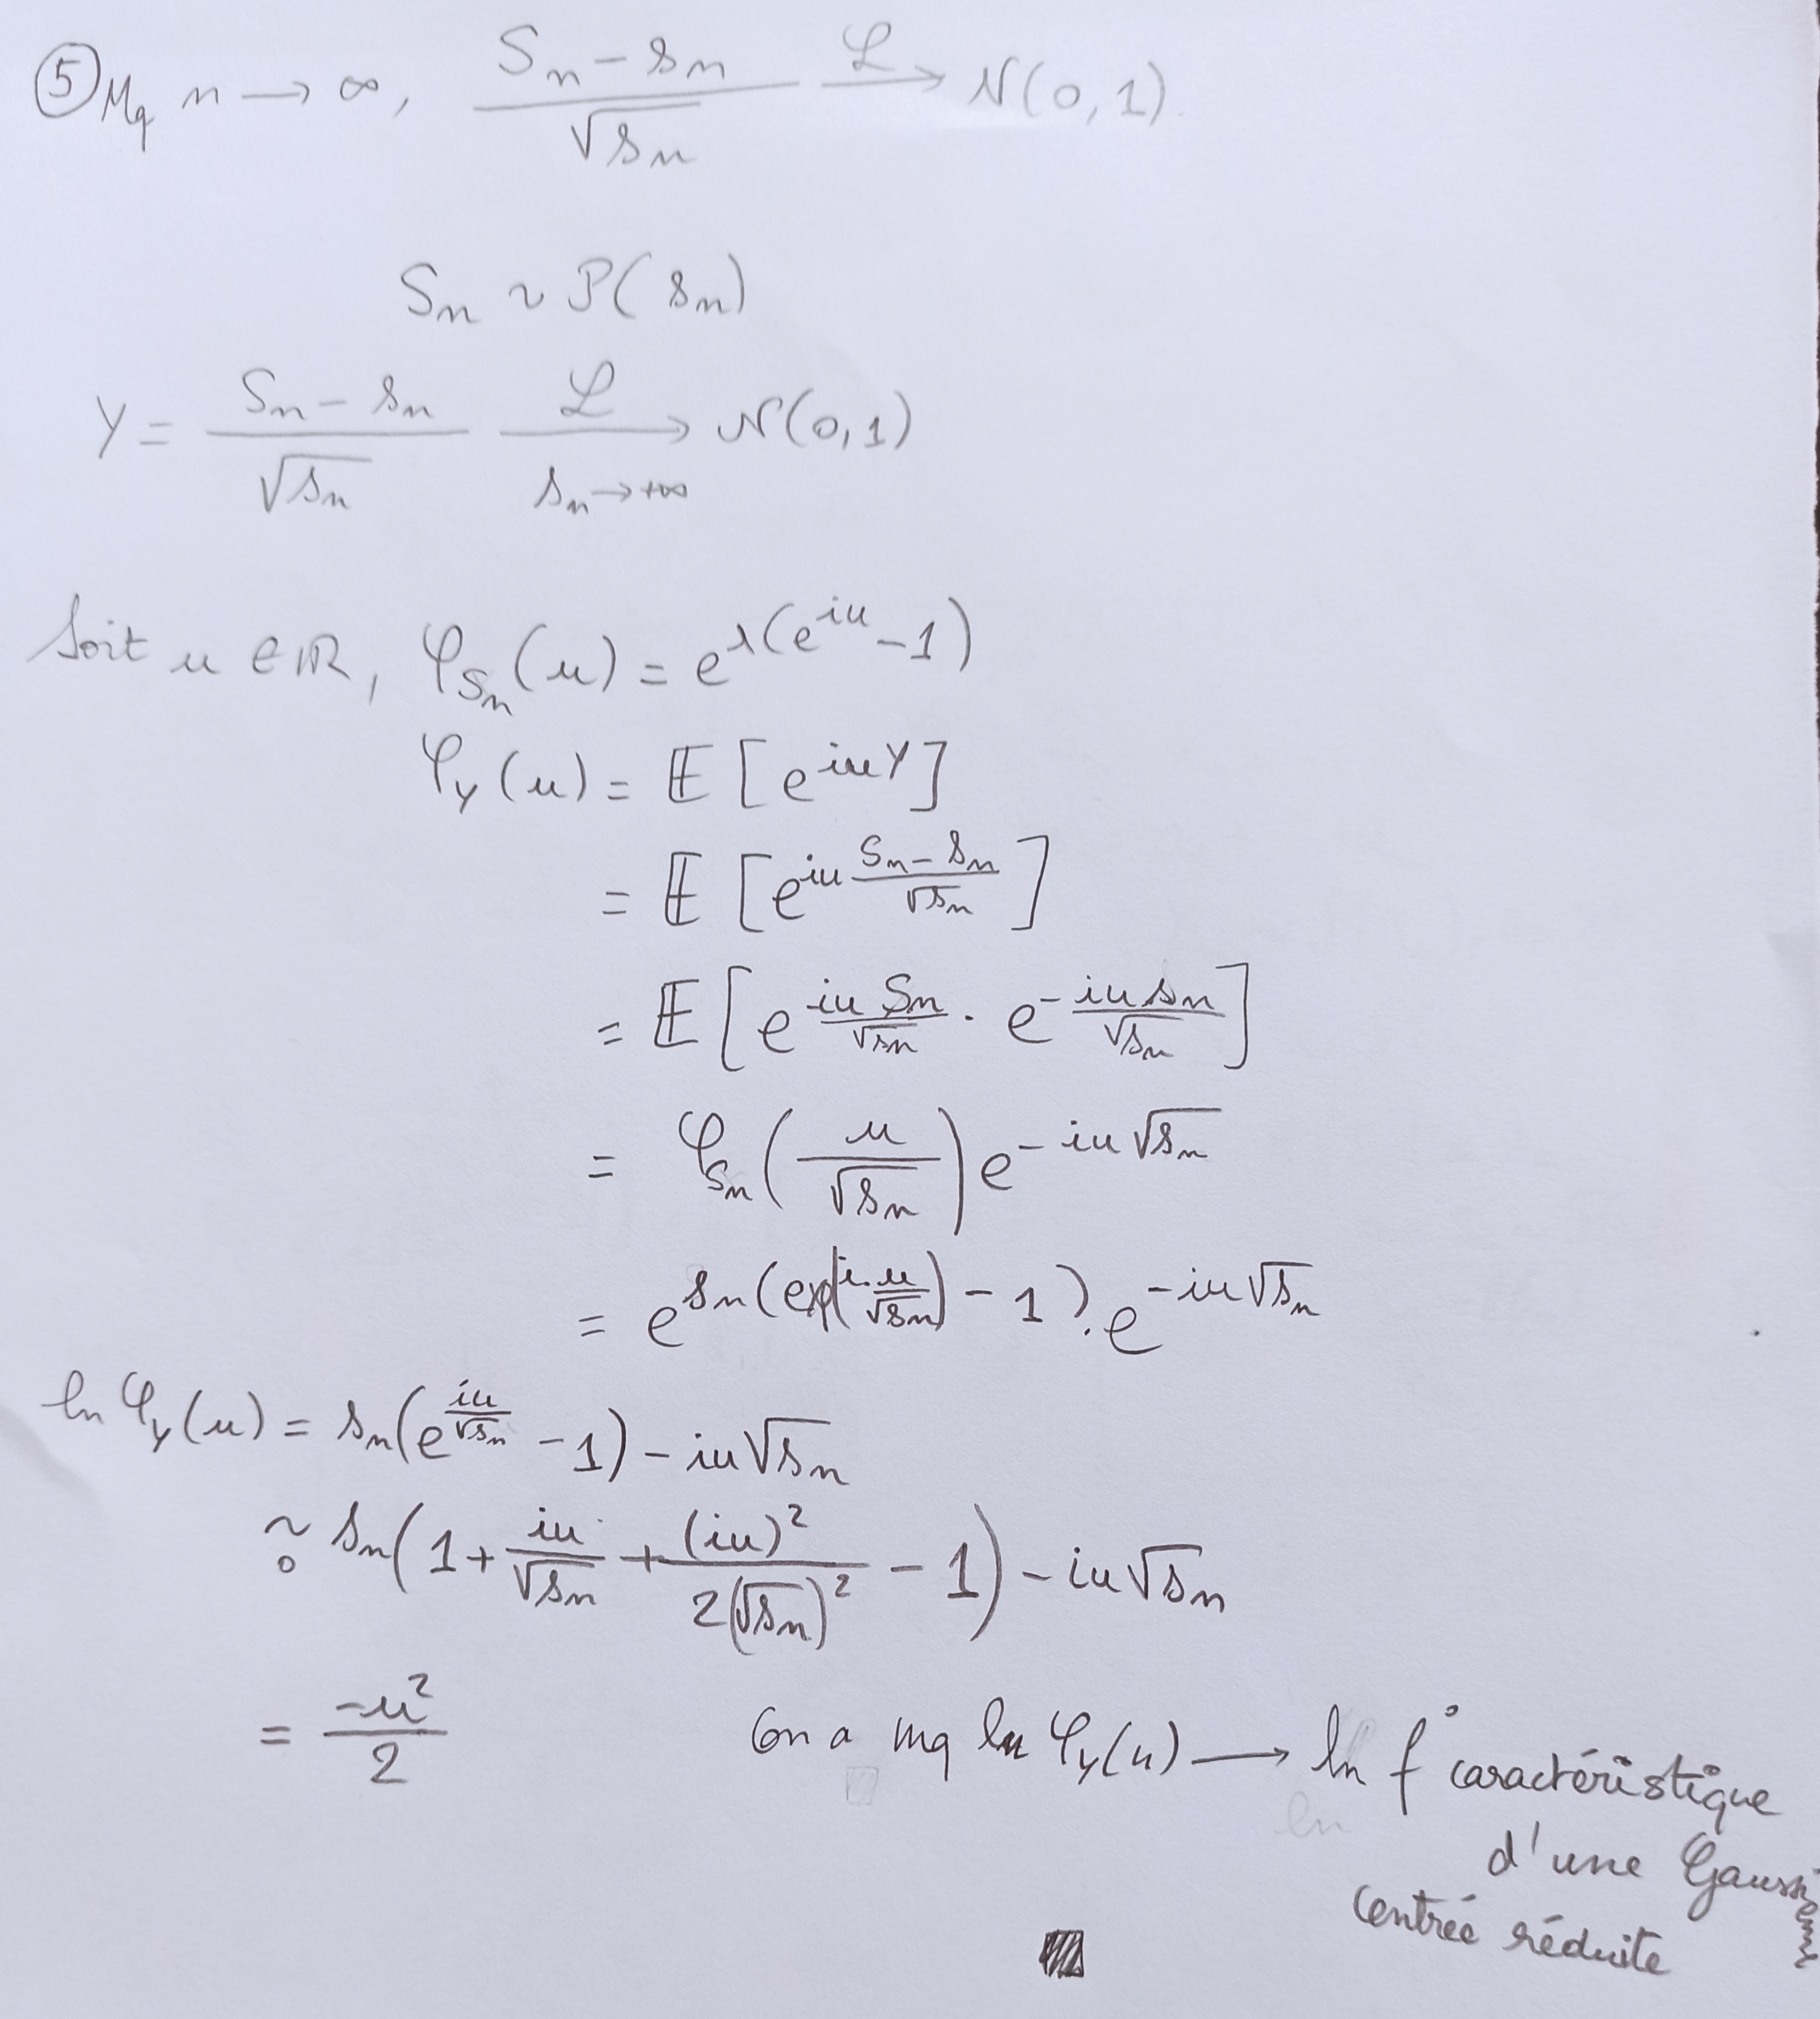 ⑤ Mq n → ∞, (Sn − sn)/√sn —ℒ→ N(0,1).
Sn ~ P(sn)
Y = (Sn − sn)/√sn —ℒ→ N(0,1) sn → +∞
Soit u ∈ ℝ, φ_Sn(u) = e^{λ(e^{iu} − 1)}
φ_Y(u) = 𝔼[e^{iuY}]
= 𝔼[e^{iu (Sn − sn)/√sn}]
= 𝔼[e^{iu Sn/√sn} · e^{− iu sn/√sn}]
= φ_Sn(u/√sn) e^{− iu√sn}
= e^{sn(exp(i·u/√sn) − 1)} · e^{−iu√sn}
ln φ_Y(u) = sn(e^{iu/√sn} − 1) − iu√sn
~₀ sn(1 + iu/√sn + (iu)²/2(√sn)² − 1) − iu√sn
= −u²/2 On a mq ln φ_Y(u) → ln f° caractéristique
ln
d'une
centrée réduite